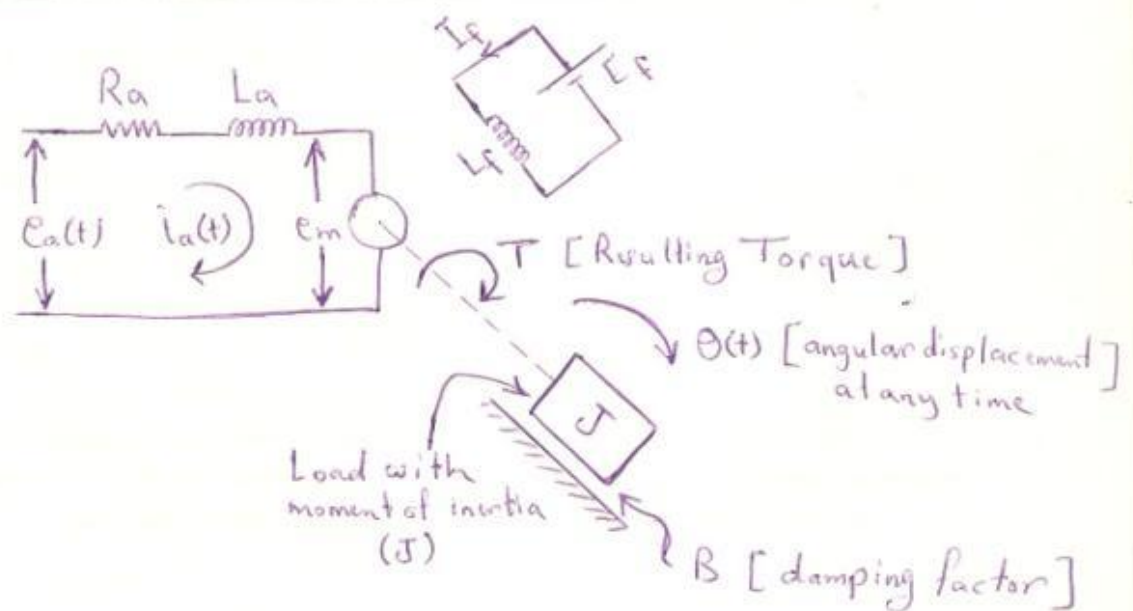 I_f
E_f
L_f
Ra La
ea(t) ia(t) em
T [Resulting Torque]
θ(t) [angular displacement]
at any time
J
Load with
moment of inertia
(J)
B [damping factor]